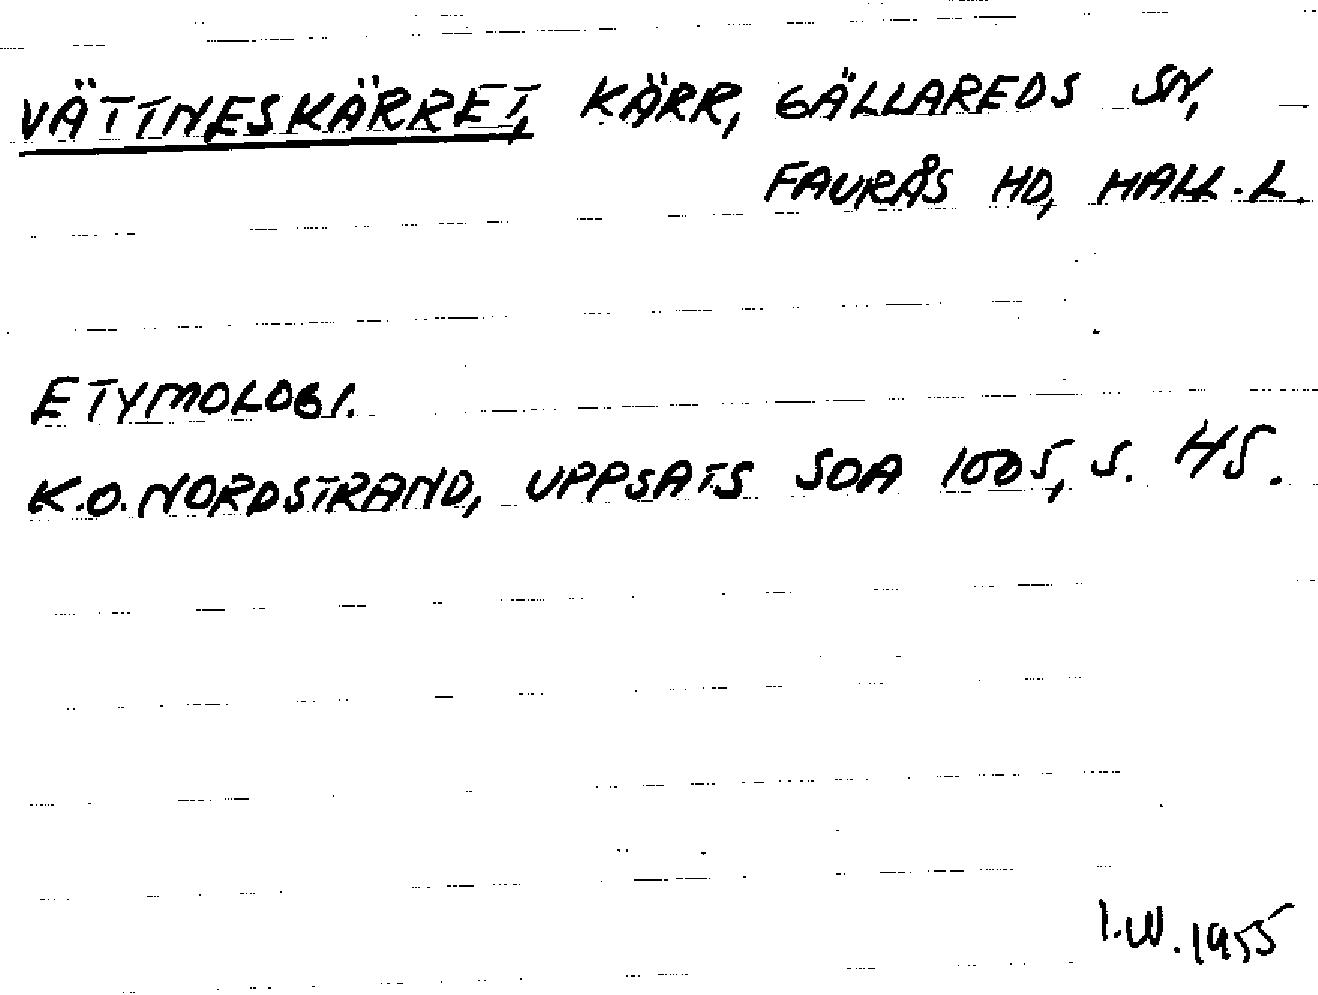 VÄTTNESKÄRRET, KÄRR, GÄLLAREDS SN,
FAURÅS HD, HALL. L.
ETYMOLOGI.
K.O. NORDSTRAND, UPPSATS SOA 1005, S. 45.
I.W. 1955